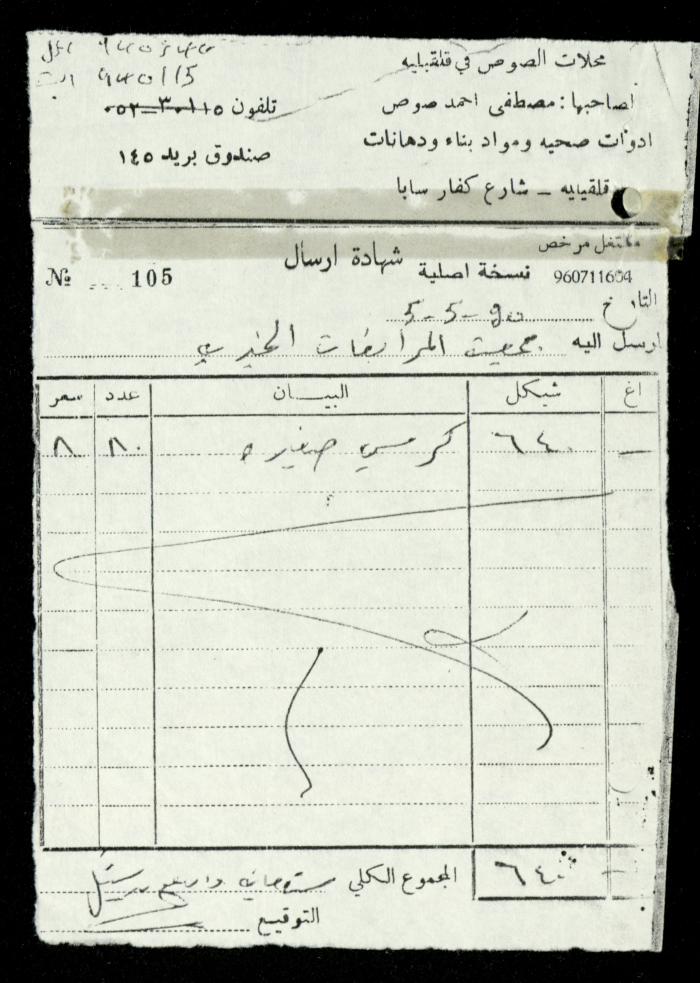 محلات الصوص في قلقيليه
لصاحبها: مصطفى احمد صوص
ادوات صحيه ومواد بناء ودهانات
قلقيليه - شارع كفار سابا
940115
تلفون ٣٠١١٥-٠٥٢
صندوق بريد ١٤٥
مشتغل مرخص
960711604
شهادة ارسال
نسخة اصلية
№ 105
التاريخ 5-5-90
ارسل اليه جمعية المرابطات الخيرية
اغ شيكل البيـــان عدد سعر
— ٦٤٠ كرسي صغير ٨٠ ٨
المجموع الكلي ٦٤٠
ستمائة واربعون شيكل
التوقيع